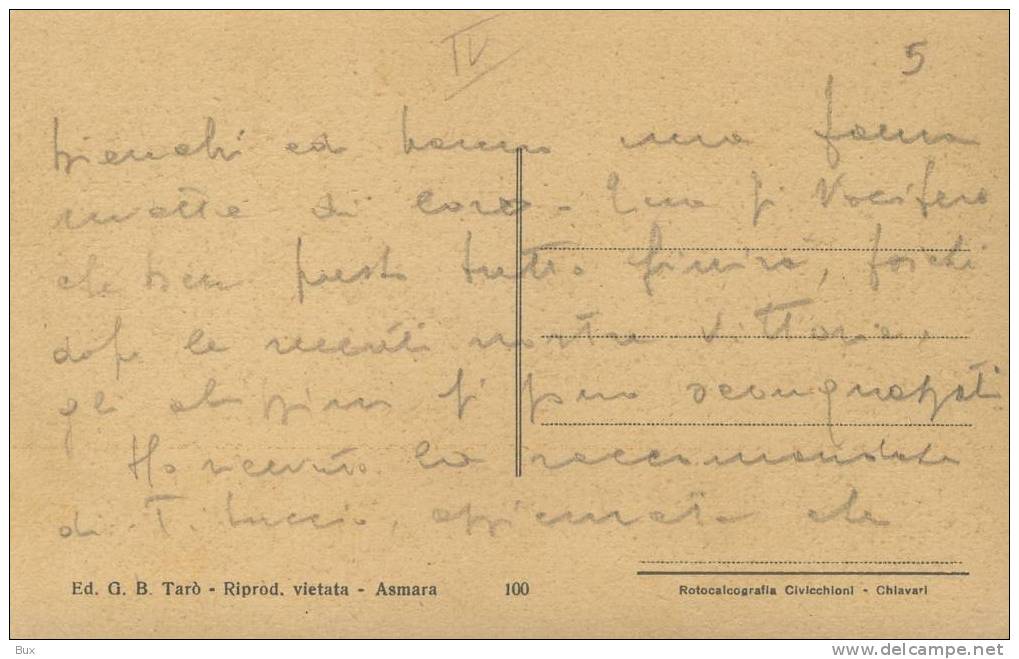 IV
5
bianchi ed hanno una
matta di . Qua si vocifera
che ben presto tutto finirà, poichè
dopo le recenti nostre vittorie,
gli abissini si sono scoraggiati
Ho ricevuto la raccomandata
di T. , assicurata che
Ed. G. B. Tarò - Riprod. vietata - Asmara 100
Rotocalcografia Civicchioni - Chiavari
Bux
www.delcampe.net